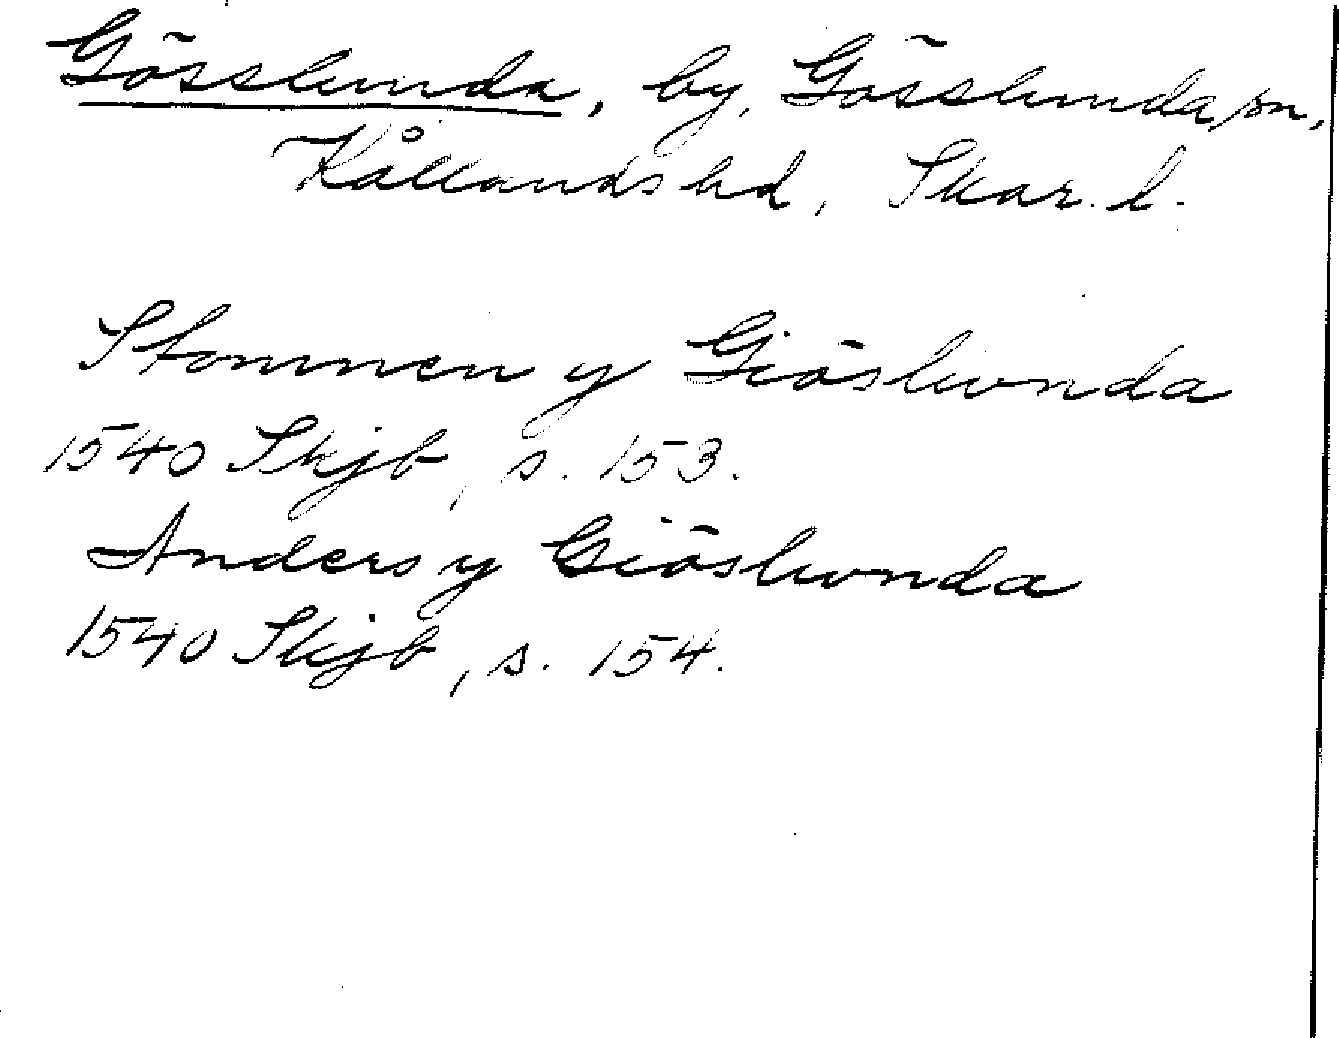 Gösslunda, by, Gösslunda sn,
Kållands hd, Skar. l.
Stommen y Giöslwnda
1540 Skjb, s. 153.
Anders y Giöslwnda
1540 Skjb, s. 154.